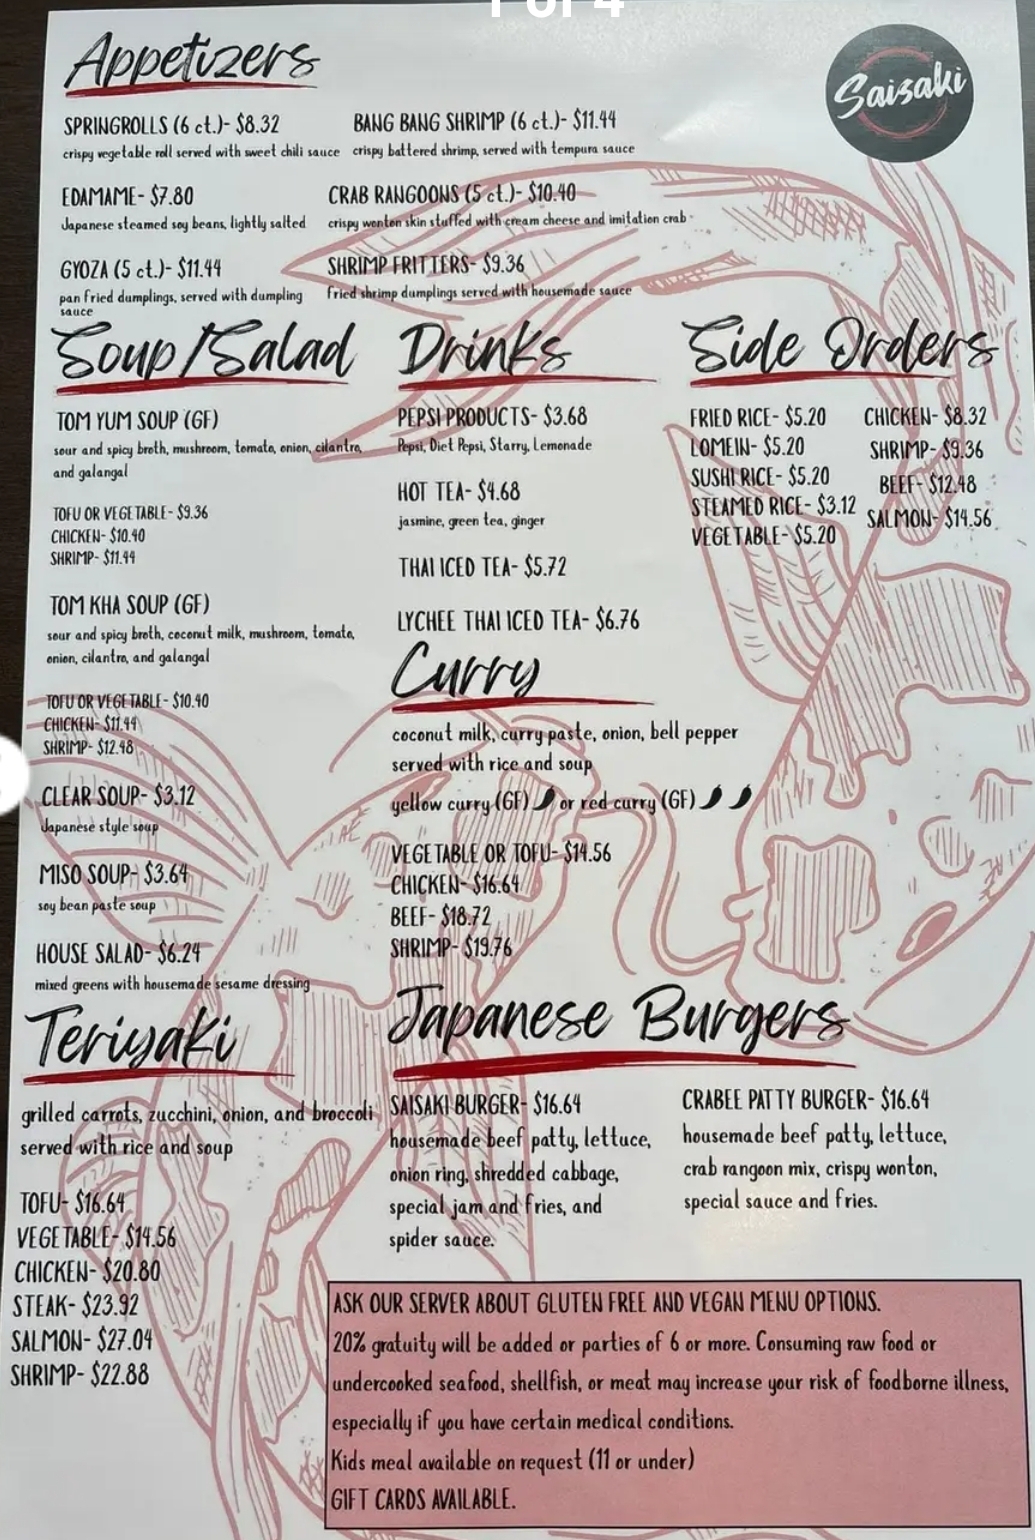 1 of 4
Appetizers
Saisaki
SPRINGROLLS (6 ct.)- $8.32
crispy vegetable roll served with sweet chili sauce
BANG BANG SHRIMP (6 ct.)- $11.44
crispy battered shrimp, served with tempura sauce
EDAMAME- $7.80
Japanese steamed soy beans, lightly salted
CRAB RANGOONS (5 ct.)- $10.40
crispy wonton skin stuffed with cream cheese and imitation crab
GYOZA (5 ct.)- $11.44
pan fried dumplings, served with dumpling
sauce
SHRIMP FRITTERS- $9.36
fried shrimp dumplings served with housemade sauce
Soup/Salad
TOM YUM SOUP (GF)
sour and spicy broth, mushroom, tomato, onion, cilantro,
and galangal
TOFU OR VEGETABLE- $9.36
CHICKEN- $10.40
SHRIMP- $11.44
TOM KHA SOUP (GF)
sour and spicy broth, coconut milk, mushroom, tomato,
onion, cilantro, and galangal
TOFU OR VEGETABLE- $10.40
CHICKEN- $11.44
SHRIMP- $12.48
CLEAR SOUP- $3.12
Japanese style soup
MISO SOUP- $3.64
soy bean paste soup
HOUSE SALAD- $6.24
mixed greens with housemade sesame dressing
Drinks
PEPSI PRODUCTS- $3.68
Pepsi, Diet Pepsi, Starry, Lemonade
HOT TEA- $4.68
jasmine, green tea, ginger
THAI ICED TEA- $5.72
LYCHEE THAI ICED TEA- $6.76
Side Orders
FRIED RICE- $5.20
LOMEIN- $5.20
SUSHI RICE- $5.20
STEAMED RICE- $3.12
VEGETABLE- $5.20
CHICKEN- $8.32
SHRIMP- $9.36
BEEF- $12.48
SALMON- $14.56
Curry
coconut milk, curry paste, onion, bell pepper
served with rice and soup
yellow curry (GF) or red curry (GF)
VEGETABLE OR TOFU- $14.56
CHICKEN- $16.64
BEEF- $18.72
SHRIMP- $19.76
Teriyaki
grilled carrots, zucchini, onion, and broccoli
served with rice and soup
TOFU- $16.64
VEGETABLE- $14.56
CHICKEN- $20.80
STEAK- $23.92
SALMON- $27.04
SHRIMP- $22.88
Japanese Burgers
SAISAKI BURGER- $16.64
housemade beef patty, lettuce,
onion ring, shredded cabbage,
special jam and fries, and
spider sauce.
CRABEE PATTY BURGER- $16.64
housemade beef patty, lettuce,
crab rangoon mix, crispy wonton,
special sauce and fries.
ASK OUR SERVER ABOUT GLUTEN FREE AND VEGAN MENU OPTIONS.
20% gratuity will be added or parties of 6 or more. Consuming raw food or
undercooked seafood, shellfish, or meat may increase your risk of foodborne illness,
especially if you have certain medical conditions.
Kids meal available on request (11 or under)
GIFT CARDS AVAILABLE.